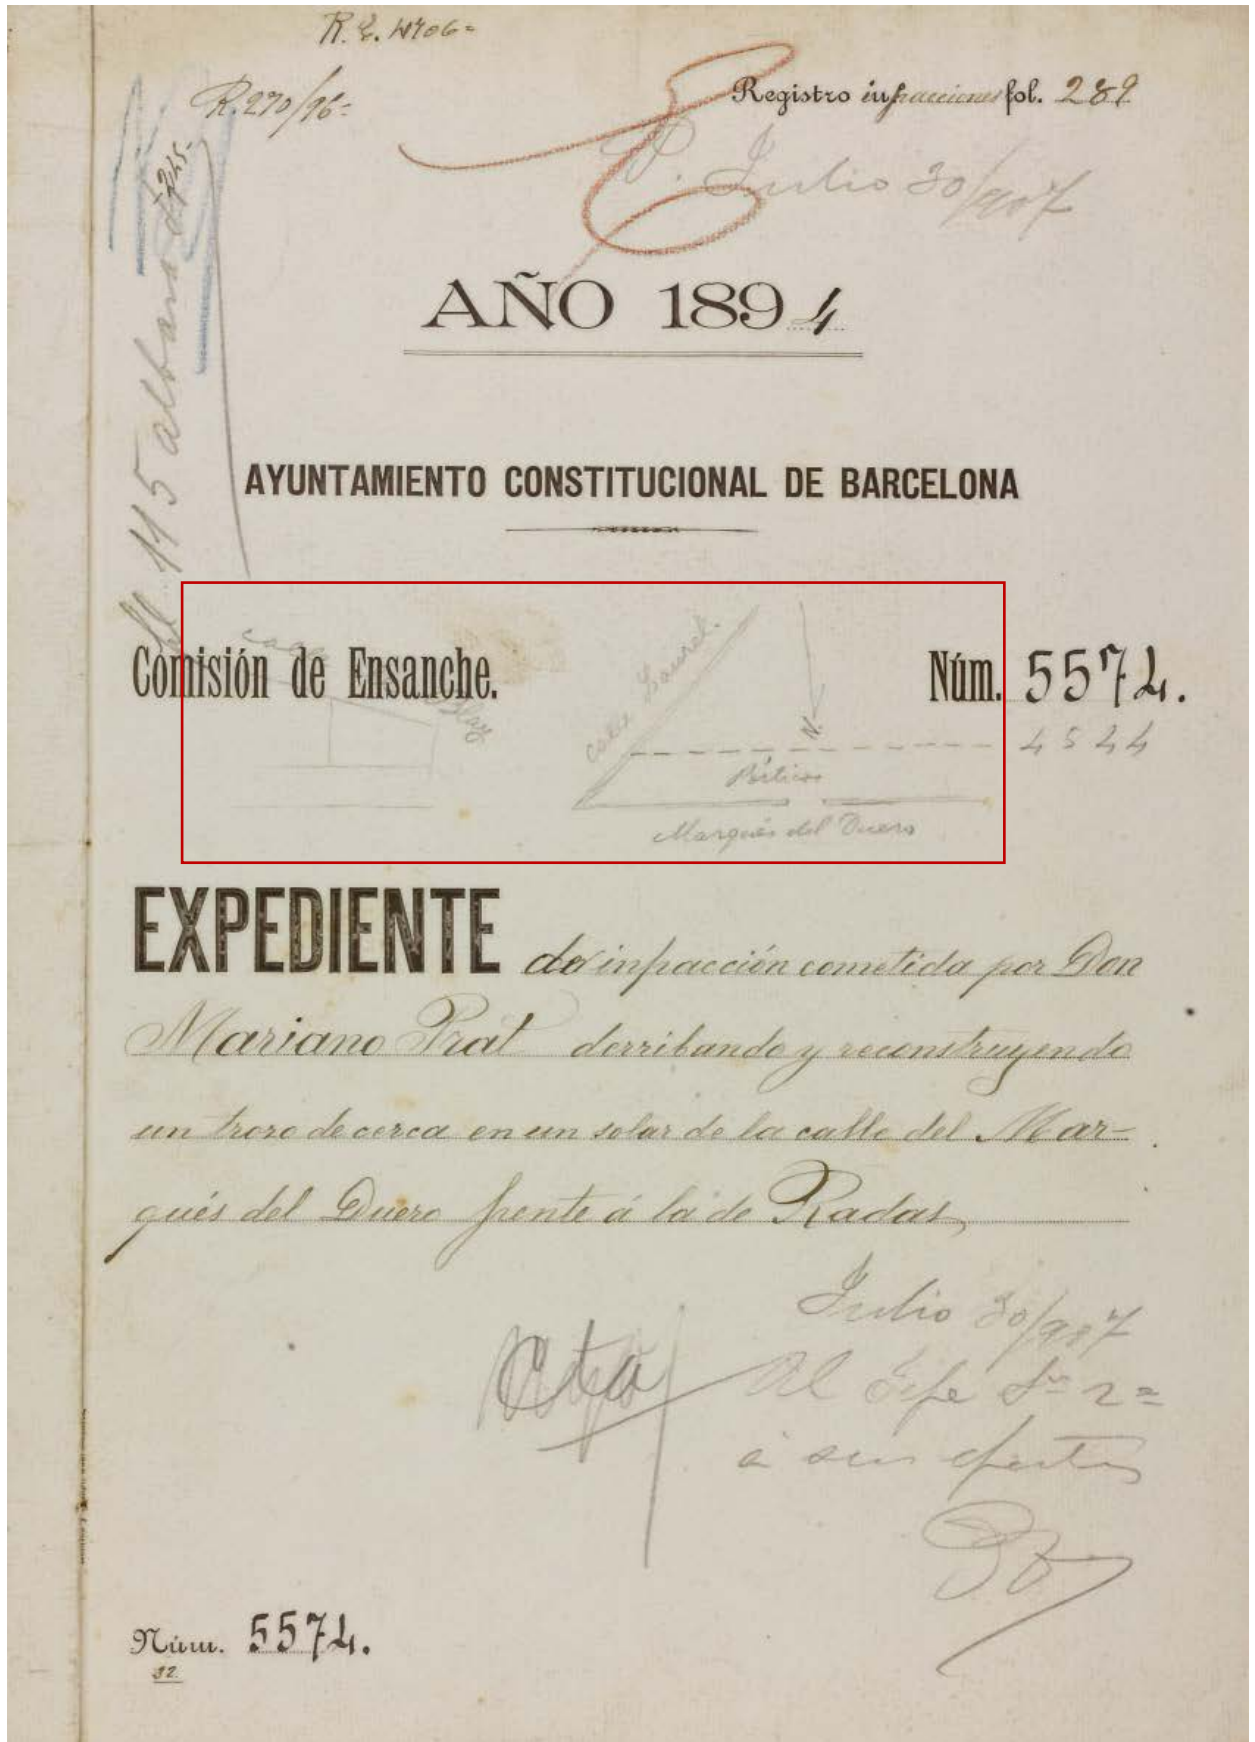 R. E. 1706=
R. 270/96=
Registro infracciones fol. 289
Julio 30/907
AÑO 1894
115 albará
AYUNTAMIENTO CONSTITUCIONAL DE BARCELONA
Comisión de Ensanche.
calle Laurel.
N.
Núm. 5574.
4544
Pórticos
Marqués del Duero
EXPEDIENTE de infracción cometida por Don
Mariano Prat derribando y reconstruyendo
un trozo de cerca en un solar de la calle del Mar-
qués del Duero frente á la de Radas,
Julio 30/907
Al Jefe Sn 2ª
á sus efectos
Núm. 5574.
32.